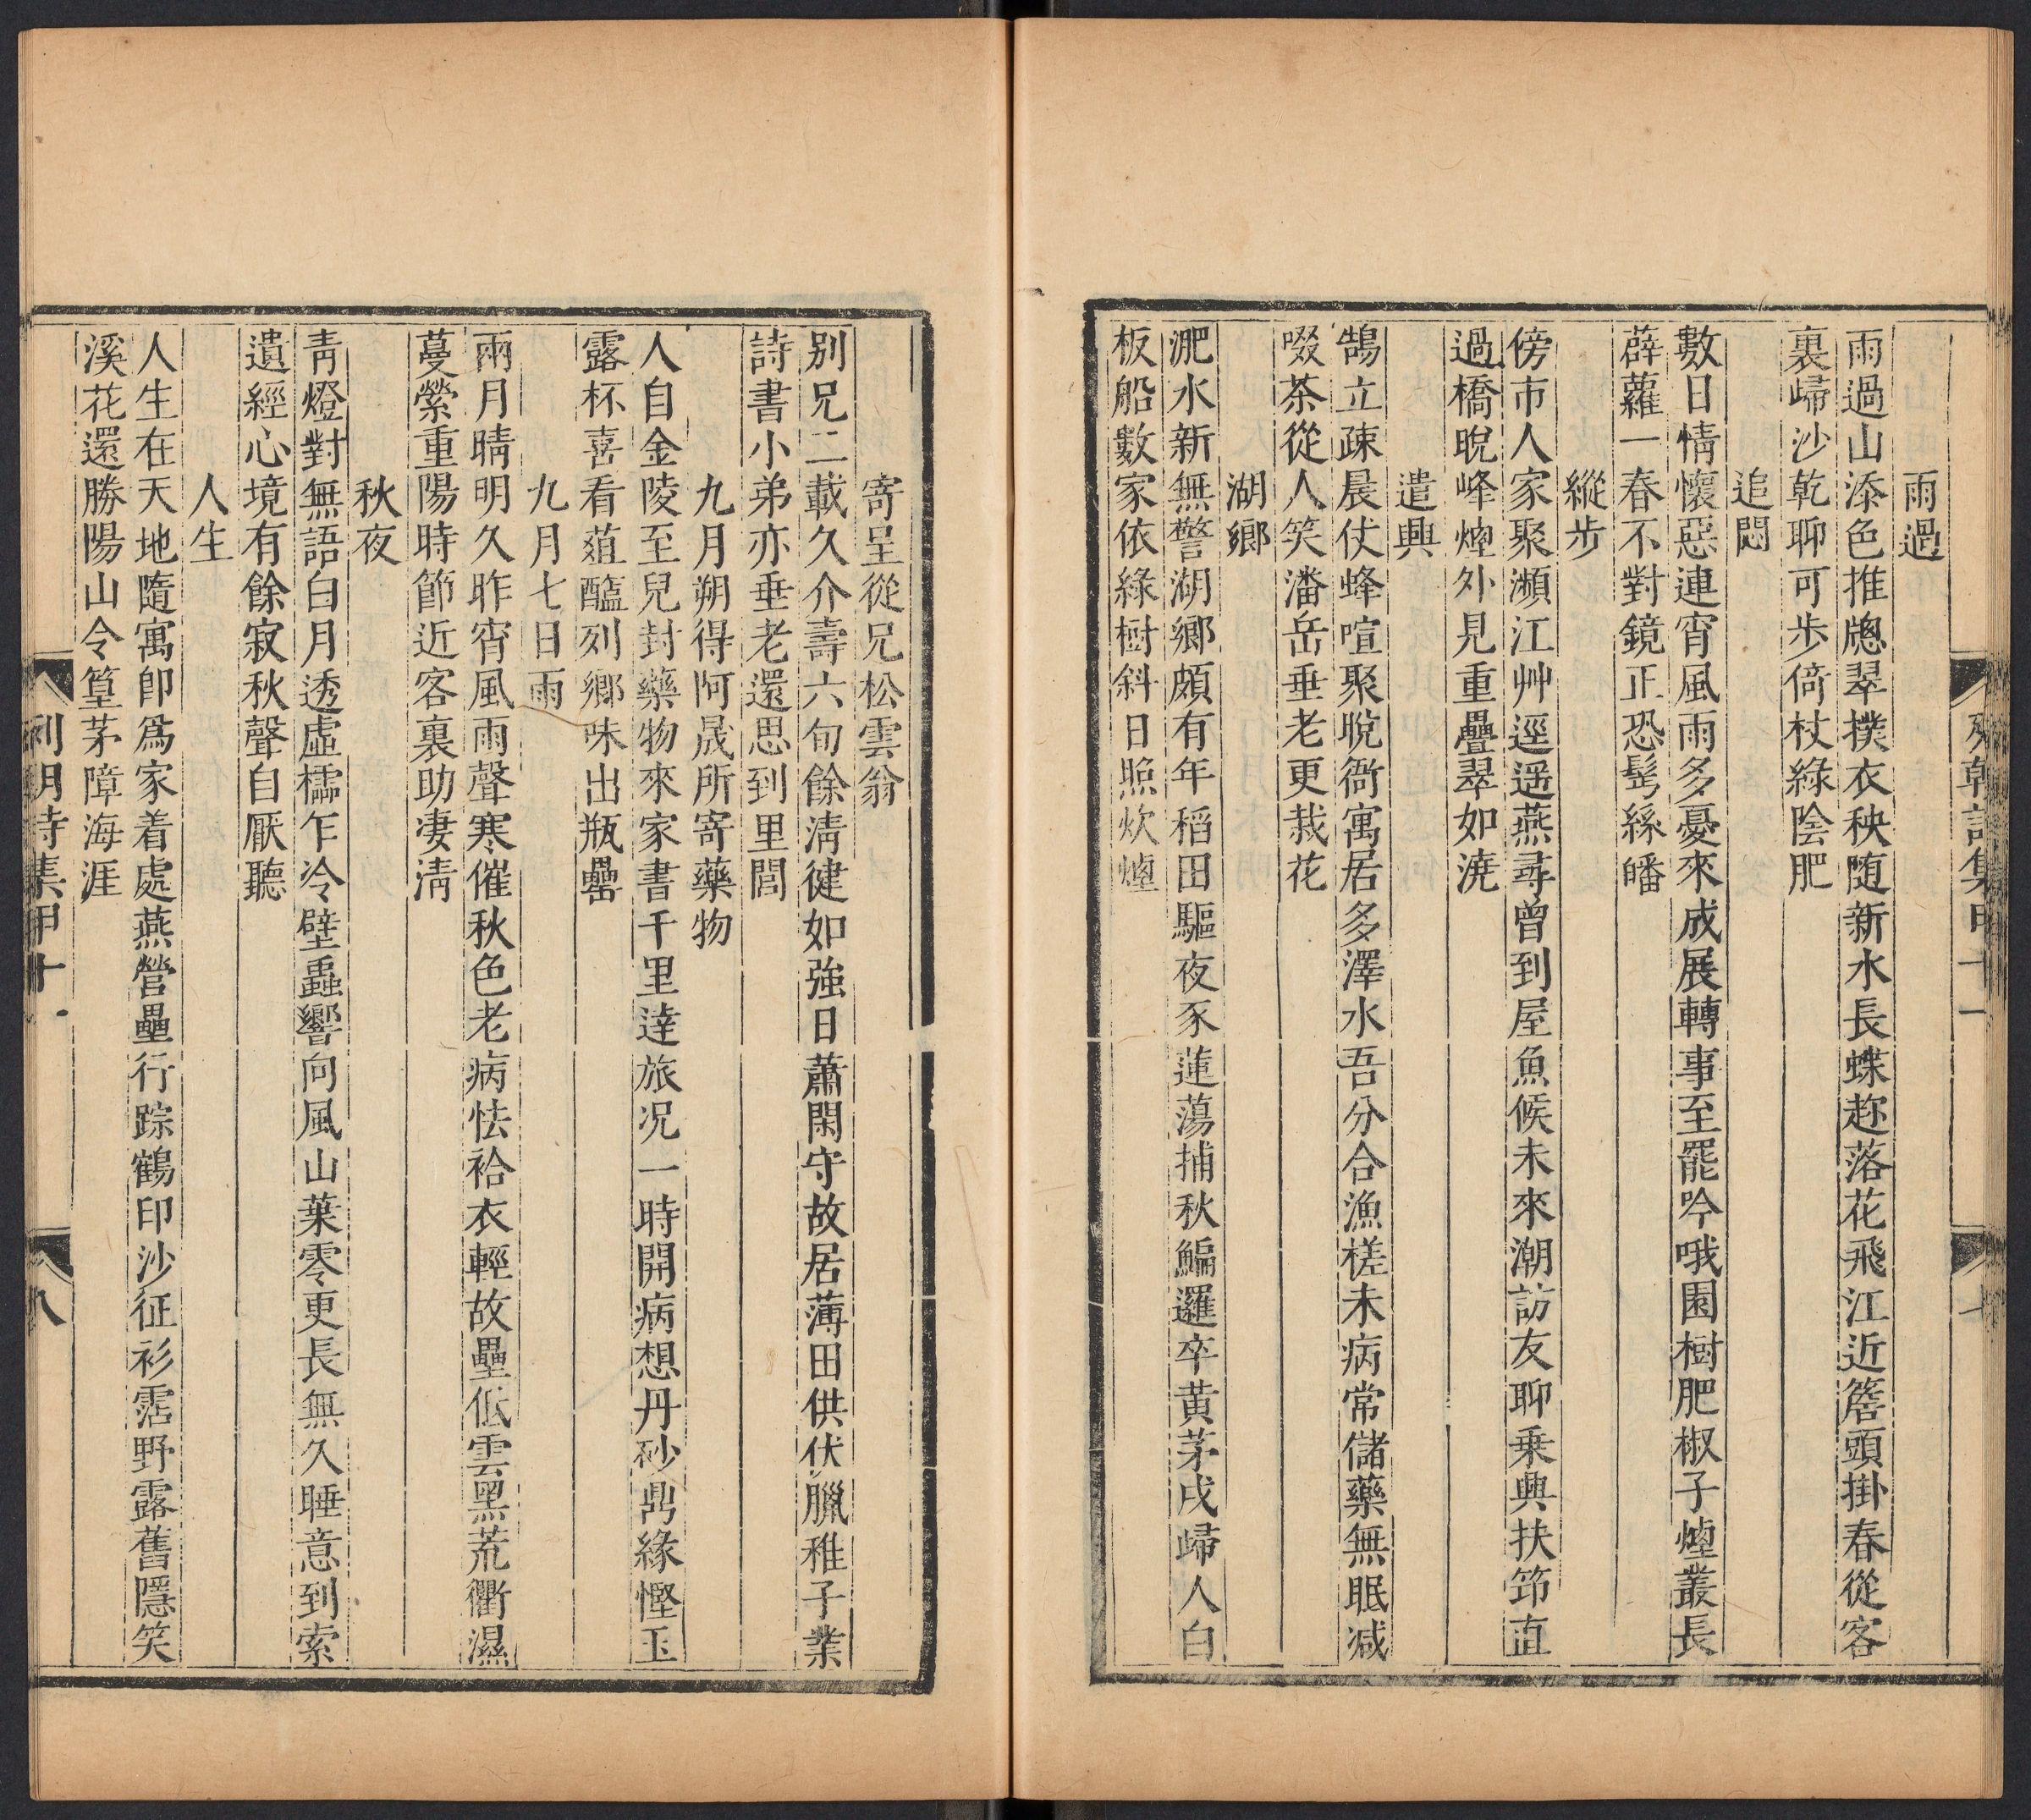 雨過
雨過山添色推牕翠撲衣秧随新水長蝶趂落花飛江近簷頭掛春從客
裏歸沙乾聊可步倚杖綠陰肥
追悶
數日情懷惡連宵風雨多憂來成展轉事至罷吟哦園樹肥椒子煙叢長
薜蘿一春不對鏡正恐髩絲皤
縱步
傍市人家聚瀕江艸逕遥燕尋曾到屋魚候未來潮訪友聊乗興扶笻直
過橋晚峰煙外見重疊翠如澆
遣興
鵠立疎晨仗蜂喧聚晚衙寓居多澤水吾分合漁槎未病常儲藥無眠减
啜茶從人笑潘岳垂老更栽花
湖鄉
淝水新無警湖鄉頗有年稻田驅夜豕蓮蕩捕秋鯿邏卒黄茅戍歸人白
板船數家依綠樹斜日照炊煙
寄呈從兄松雲翁
别兄二載久介壽六旬餘清健如強日蕭閑守故居薄田供伏臘稚子業
詩書小弟亦垂老還思到里閭
九月朔得阿晟所寄藥物
人自金陵至兒封藥物來家書千里達旅况一時開病想丹砂鼎緣慳玉
露杯喜看葅醢列鄉味出瓶罍
九月七日雨
兩月晴明久昨宵風雨聲寒催秋色老病怯袷衣輕故壘低雲黑荒衢濕
蔓縈重陽時節近客裏助凄清
秋夜
青燈對無語白月透虚櫺乍冷壁蟲響向風山葉零更長無久睡意到索
遺經心境有餘寂秋聲自厭聽
人生
人生在天地隨寓卽爲家着處燕營壘行踪鶴印沙征衫霑野露舊隱笑
溪花還勝陽山令篁茅障海涯
詩集甲十
八